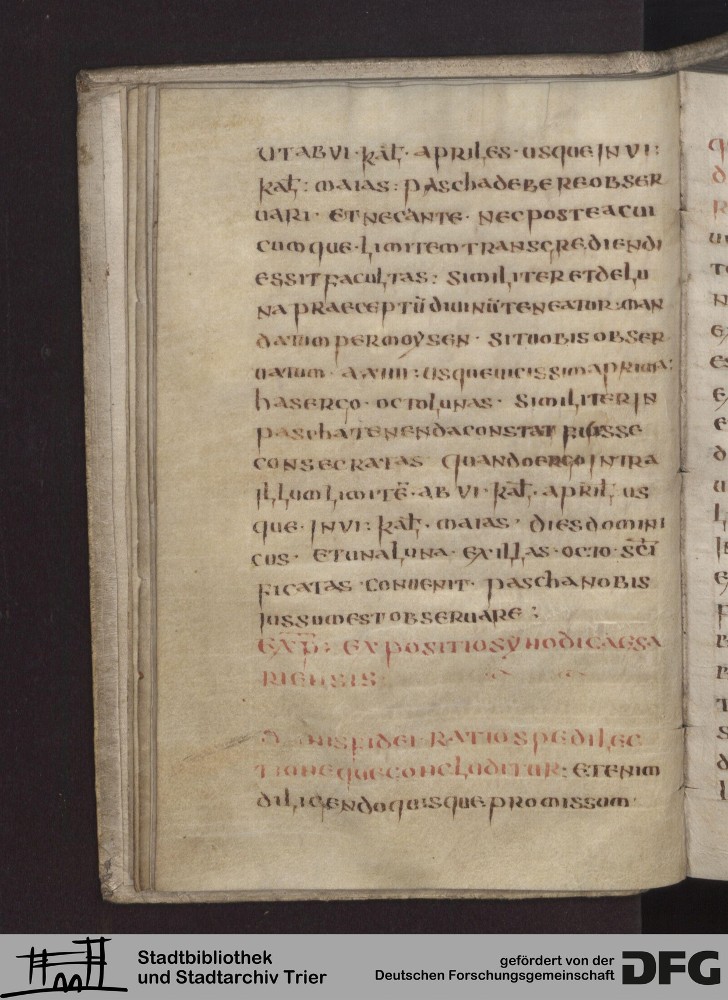 UT AB VI · kał · APRILES · USQUE IN VI:
kał: MAIAS: PASCHA DEBERE OBSER
UARI · ET NEC ANTE · NEC POSTEA CUI
CUMQUE · LIMITEM TRANSGREDIENDI
ESSIT FACULTAS: SIMILITER ET DE LU
NA PRAECEPTŪ DIUINŪ TENEATUR: MAN
DATUM PER MOYSEN · SIT UOBIS OBSER
UATUM · A XIIII: USQUE UICISSIMA PRIMA:
HAS ERGO · OCTO LUNAS · SIMILITER IN
PASCHA TENENDA CONSTAT FUISSE
CONSECRATAS QUANDO ERGO INTRA
ILLUM LIMITĒ · AB VI · kał · APRIL · US
QUE · IN VI: kał · MAIAS · DIES DOMINI
CUS · ET UNA LUNA · EX ILLAS · OCTO · SCI
FICATAS · CONUENIT · PASCHA NOBIS
IUSSUM EST OBSERUARE:
EXP: EXPOSITIO SYNODI CAESA
RIENSIS
FIDEI RATIO SPE DILEC
TIONEQUE CONCLUDITUR: ETENIM
DILIGENDO QUISQUE PROMISSUM
Stadtbibliothek
und Stadtarchiv Trier
gefördert von der
Deutschen Forschungsgemeinschaft
DFG